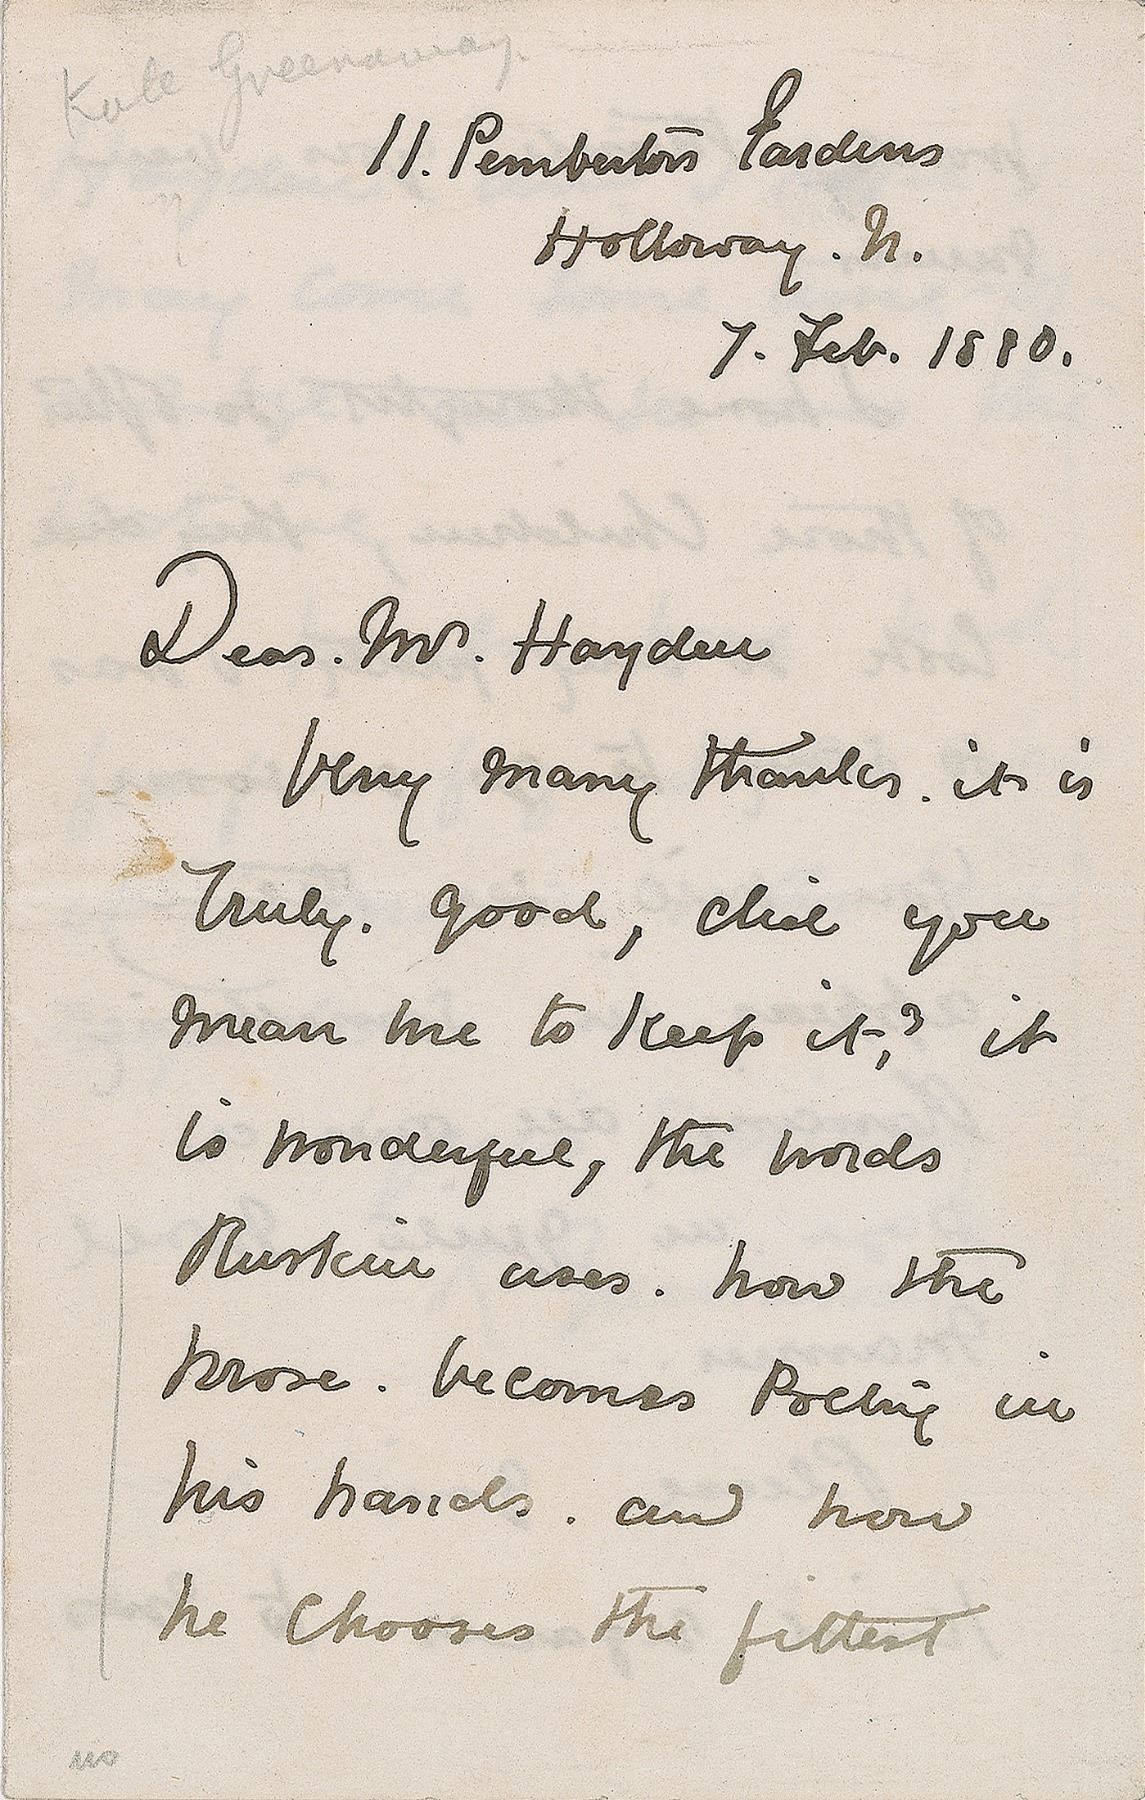 Kate Greenaway.
11. Pemberton Gardens
Holloway. N.
7. Feb. 1880.
Dear. Mr. Hayden
Very many thanks. it is
truly. good, did you
mean me to keep it,? it
is wonderful, the words
Ruskin uses. how the
prose. becomes Poetry in
his hands. and how
he Chooses the fittest